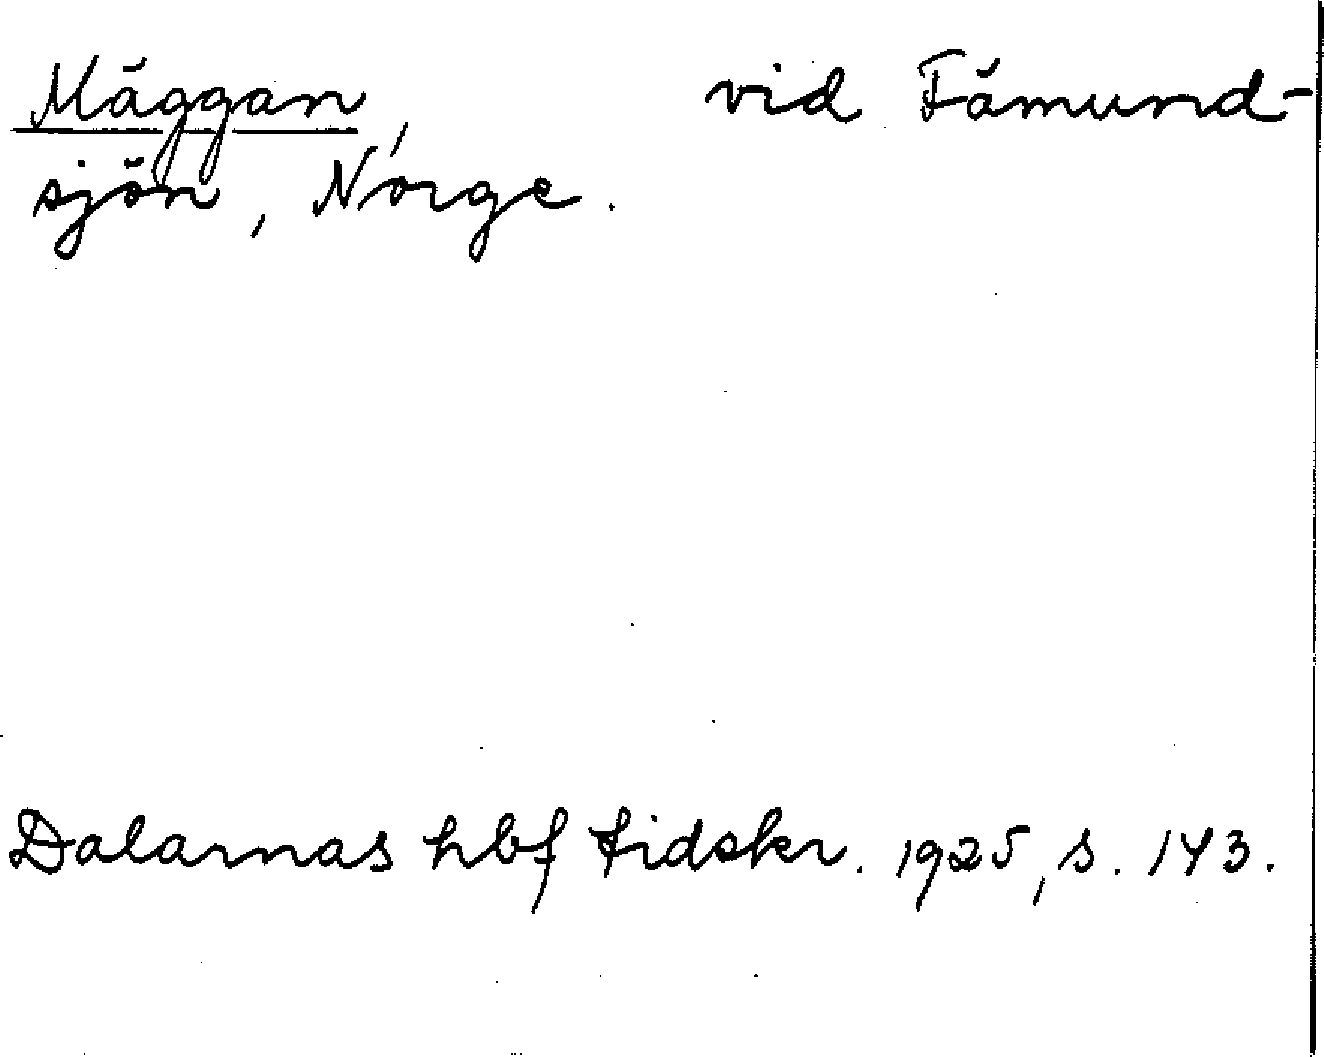 Mäggan, vid Fämund-
sjön, Norge.
Dalarnas hbf tidskr. 1925, s. 143.